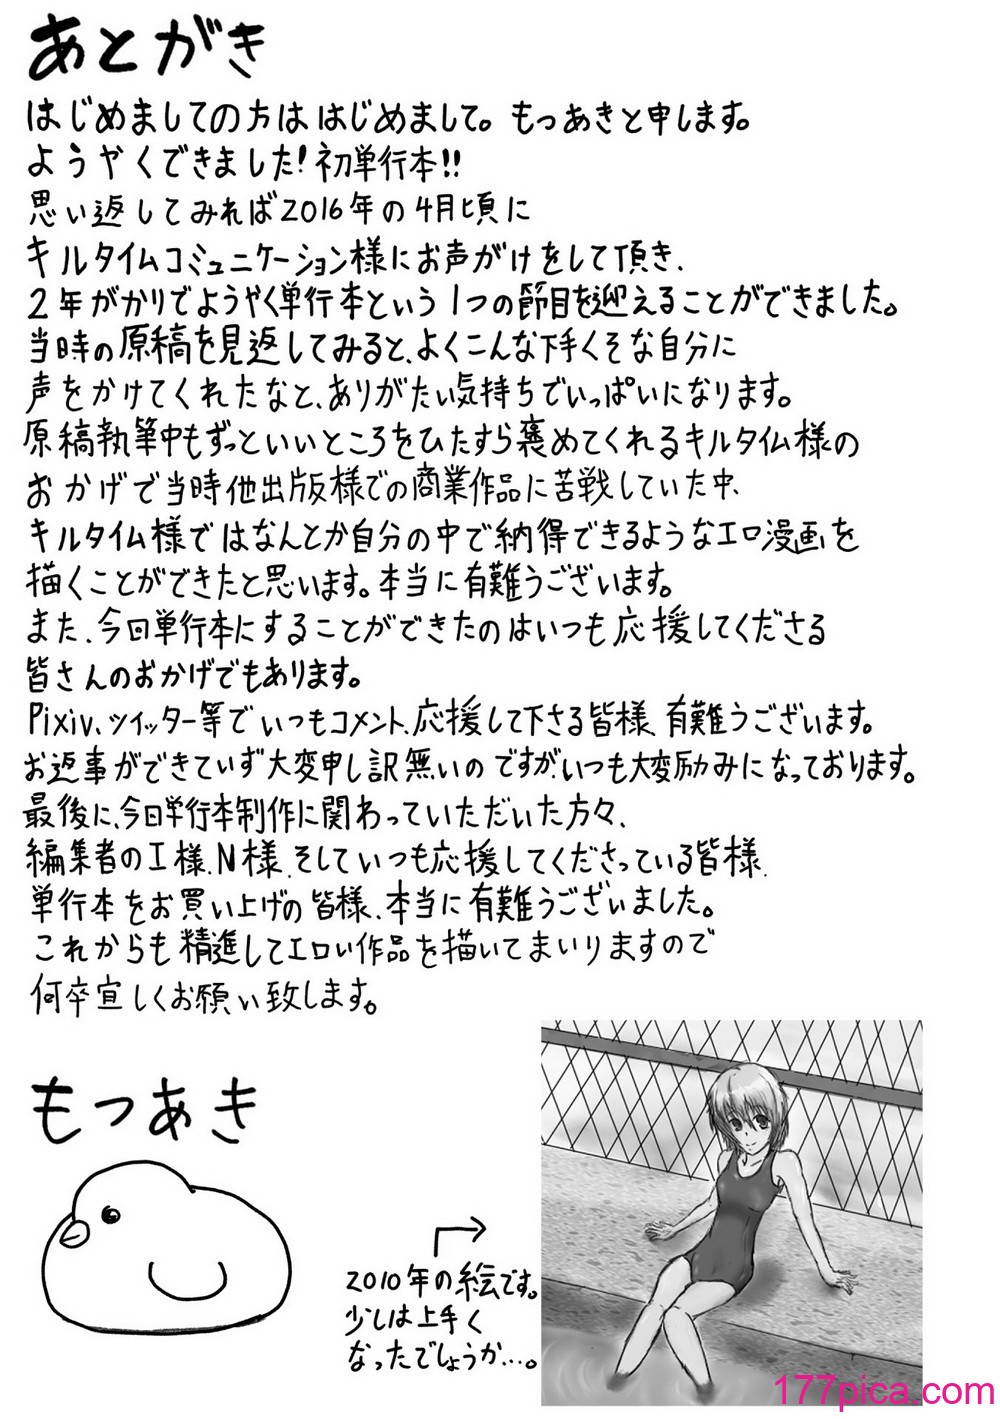 あとがき
はじめましての方ははじめまして。もつあきと申します。
ようやくできました!初単行本!!
思い返してみれば2016年の4月頃に
キルタイムコミュニケーション様にお声がけをして頂き、
2年がかりでようやく単行本という1つの節目を迎えることができました。
当時の原稿を見返してみると、よくこんな下手くそな自分に
声をかけてくれたなと、ありがたい気持ちでいっぱいになります。
原稿執筆中もずっといいところをひたすら褒めてくれるキルタイム様の
おかげで当時他出版様での商業作品に苦戦していた中、
キルタイム様ではなんとか自分の中で納得できるようなエロ漫画を
描くことができたと思います。本当に有難うございます。
また、今回単行本にすることができたのはいつも応援してくださる
皆さんのおかげでもあります。
Pixiv、ツイッター等でいつもコメント、応援して下さる皆様、有難うございます。
お返事ができていず大変申し訳無いのですが、いつも大変励みになっております。
最後に、今回単行本制作に関わっていただいた方々、
編集者のI様、N様、そしていつも応援してくださっている皆様、
単行本をお買い上げの皆様、本当に有難うございました。
これからも精進してエロい作品を描いてまいりますので
何卒宜しくお願い致します。
もつあき
2010年の絵です。
少しは上手く
なったでしょうか…。
177pica.com